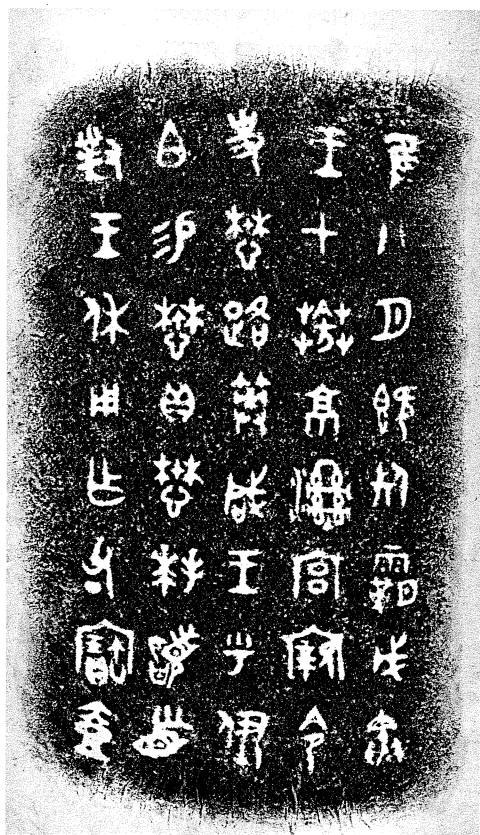 隹八月既死霸戊寅
王才葊京溼宮寴令
史懋路筭咸王乎伊
白易懋貝懋拜𩒨首
對王休用乍父丁寶壺